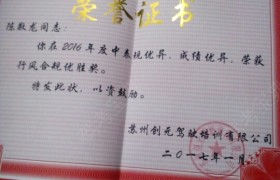 荣誉证书
陈敬龙同志：
你在2016年度中表现优异，成绩优异，荣获
行风合规优胜奖。
特发此状，以资鼓励。
苏州创元驾驶培训有限公司
二〇一七年一月